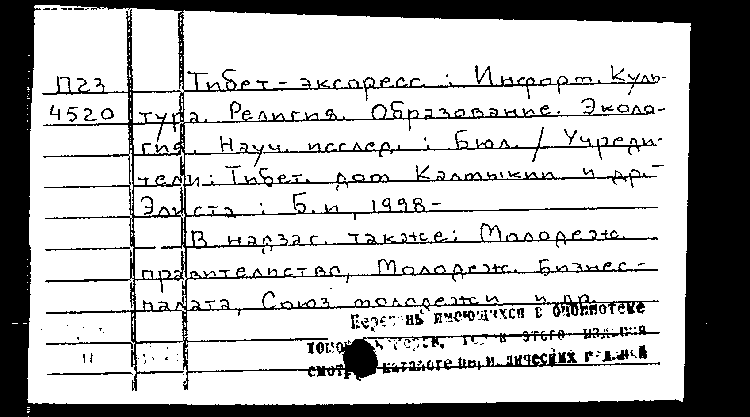 П23
4520
Тибет-экспресс : Информ. Куль-
тура. Религия. Образование. Эколо-
гия. Науч. исслед. : Бюл. / Учреди-
тели: Тибет. дом Калмыкии и др.-
Элиста : Б.и, 1998-
В надзаг. также: Молодеж.
правительство, Молодеж. Бизнес-
палата, Союз молодежи и др.
Перечень имеющихся в библиотеке
этого издания
смотри в каталоге периодических изданий